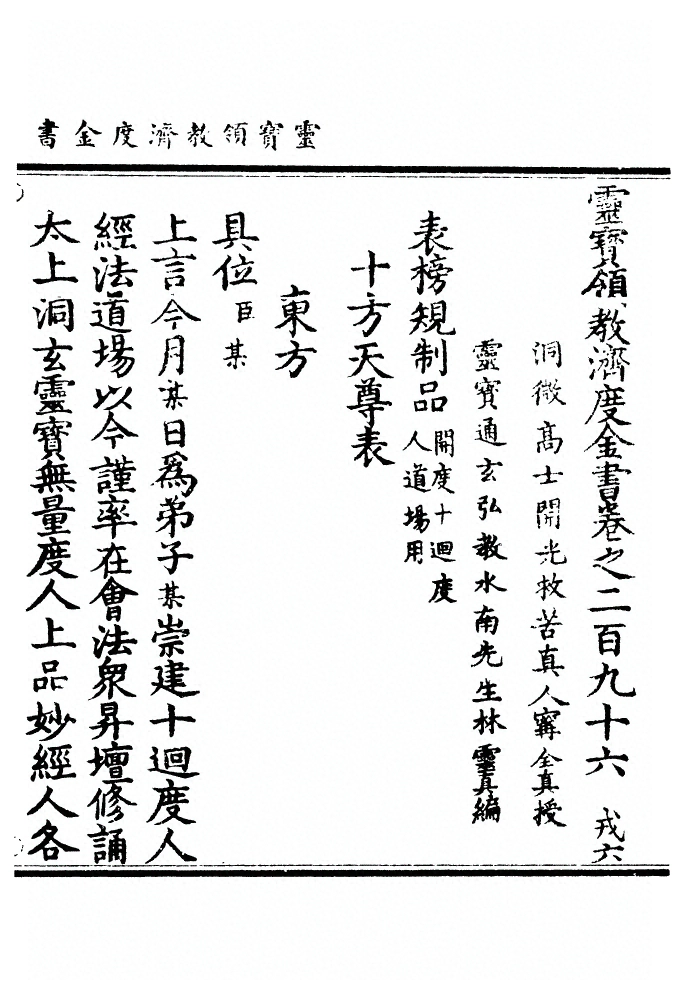 靈寶領教濟度金書
靈寶領教濟度金書卷之二百九十六 戎六
洞微高士開光救苦真人甯全真授
靈寶通玄弘教水南先生林靈真編
表榜規制品 開度十迴度
人道場用
十方天尊表
東方
具位臣某
上言今月某日為弟子某崇建十迴度人
經法道場以今謹率在會法衆昇壇修誦
太上洞玄靈寶無量度人上品妙經人各